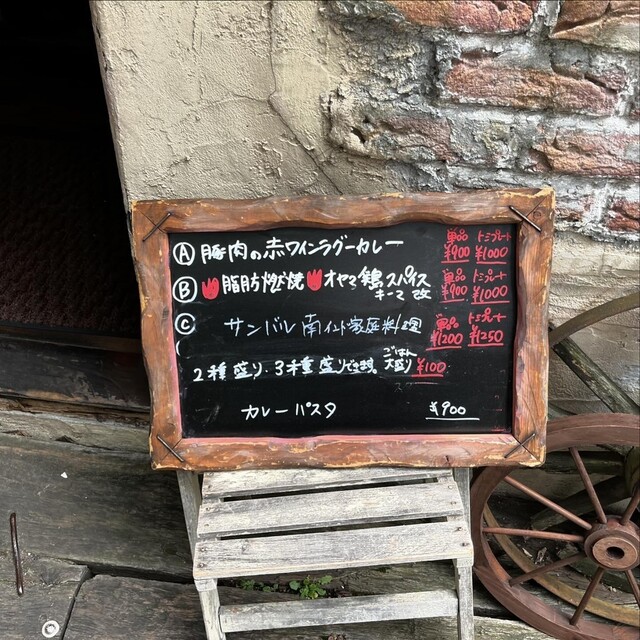 Ⓐ 豚肉の赤ワインラグーカレー 単品 ¥900 トミプレート ¥1000
Ⓑ 脂肪燃焼 オヤマ鶏スパイスキーマ 改 単品 ¥900 トミプレート ¥1000
Ⓒ サンバル 南インド家庭料理 単品 ¥1200 トミプレート ¥1250
2種盛り・3種盛りできます。 ごはん大盛り ¥100
カレーパスタ ¥900